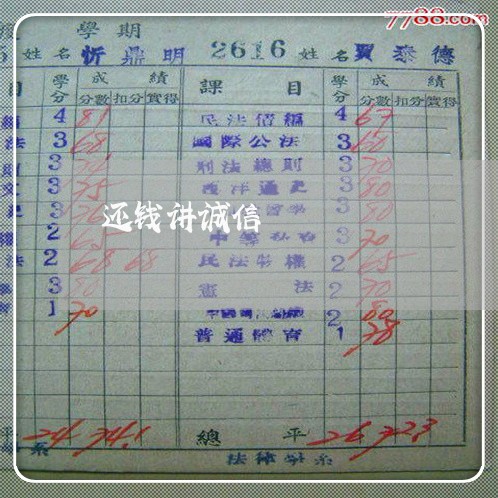 7788.com
學期
姓名 忻鼎明 2616 姓名 賈泰德
目 學分 成績 課目 學分 成績
分數 扣分 實得 分數 扣分 實得
4 81 民法債編 4 67
法 3 68 國際公法 3 60
3 刑法總則 3 70
3 75 西洋通史 3 80
3 3 80
2 65 3 70
法 2 68 68 民法物權 2 65
3 80 憲法 2 70
1 70 2 80
普通體育 1 78
还钱讲诚信
平 24 74.1 總平 26 72.3
系 法律學系